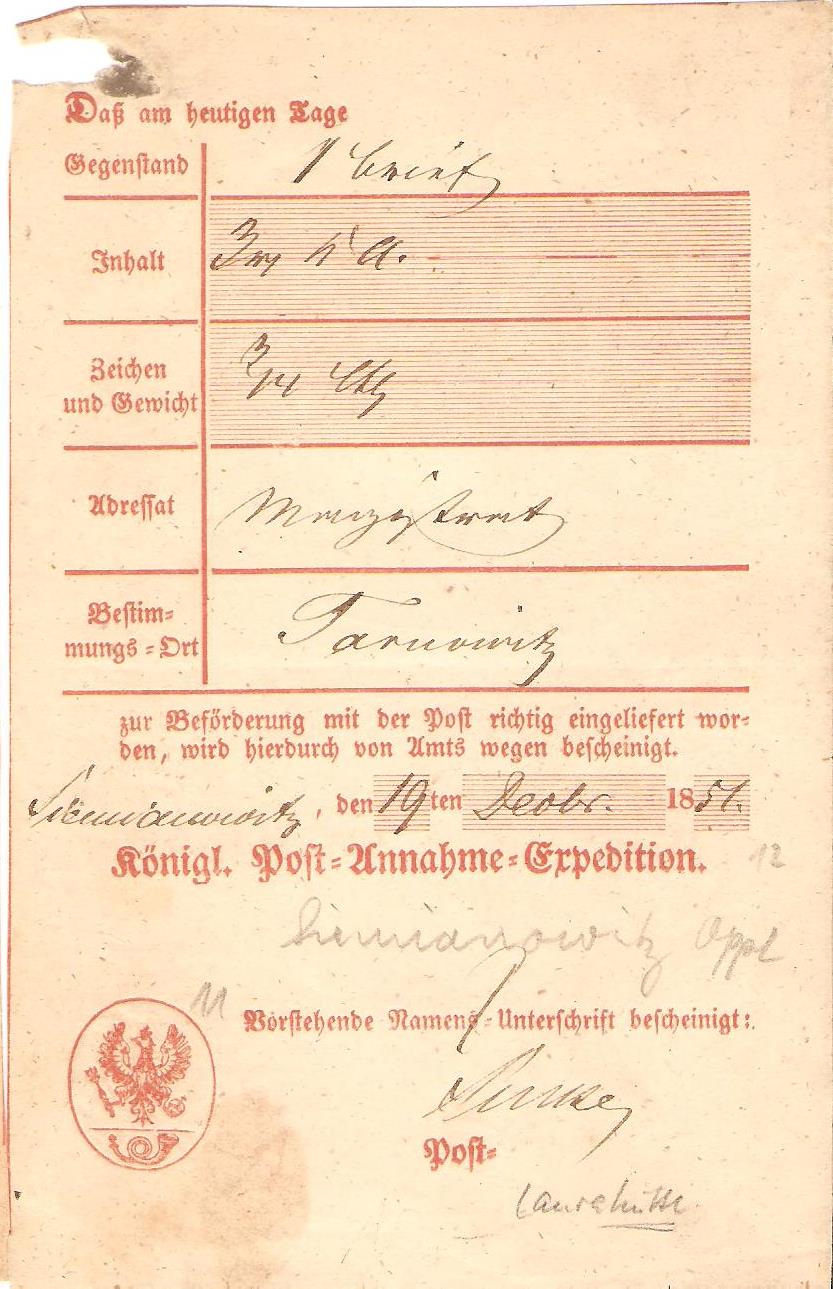 Daß am heutigen Tage
Gegenstand 1 Brief
Inhalt
Zeichen
und Gewicht
Adressat Magistrat
Bestim-
mungs-Ort Tarnowitz
zur Beförderung mit der Post richtig eingeliefert wor-
den, wird hierdurch von Amts wegen bescheinigt.
Siemianowitz, den 19ten Decbr. 1851.
Königl. Post-Annahme-Expedition.
12
Siemianowitz Oppl
11
Vorstehende Namens-Unterschrift bescheinigt:
Post-
Laurahütte